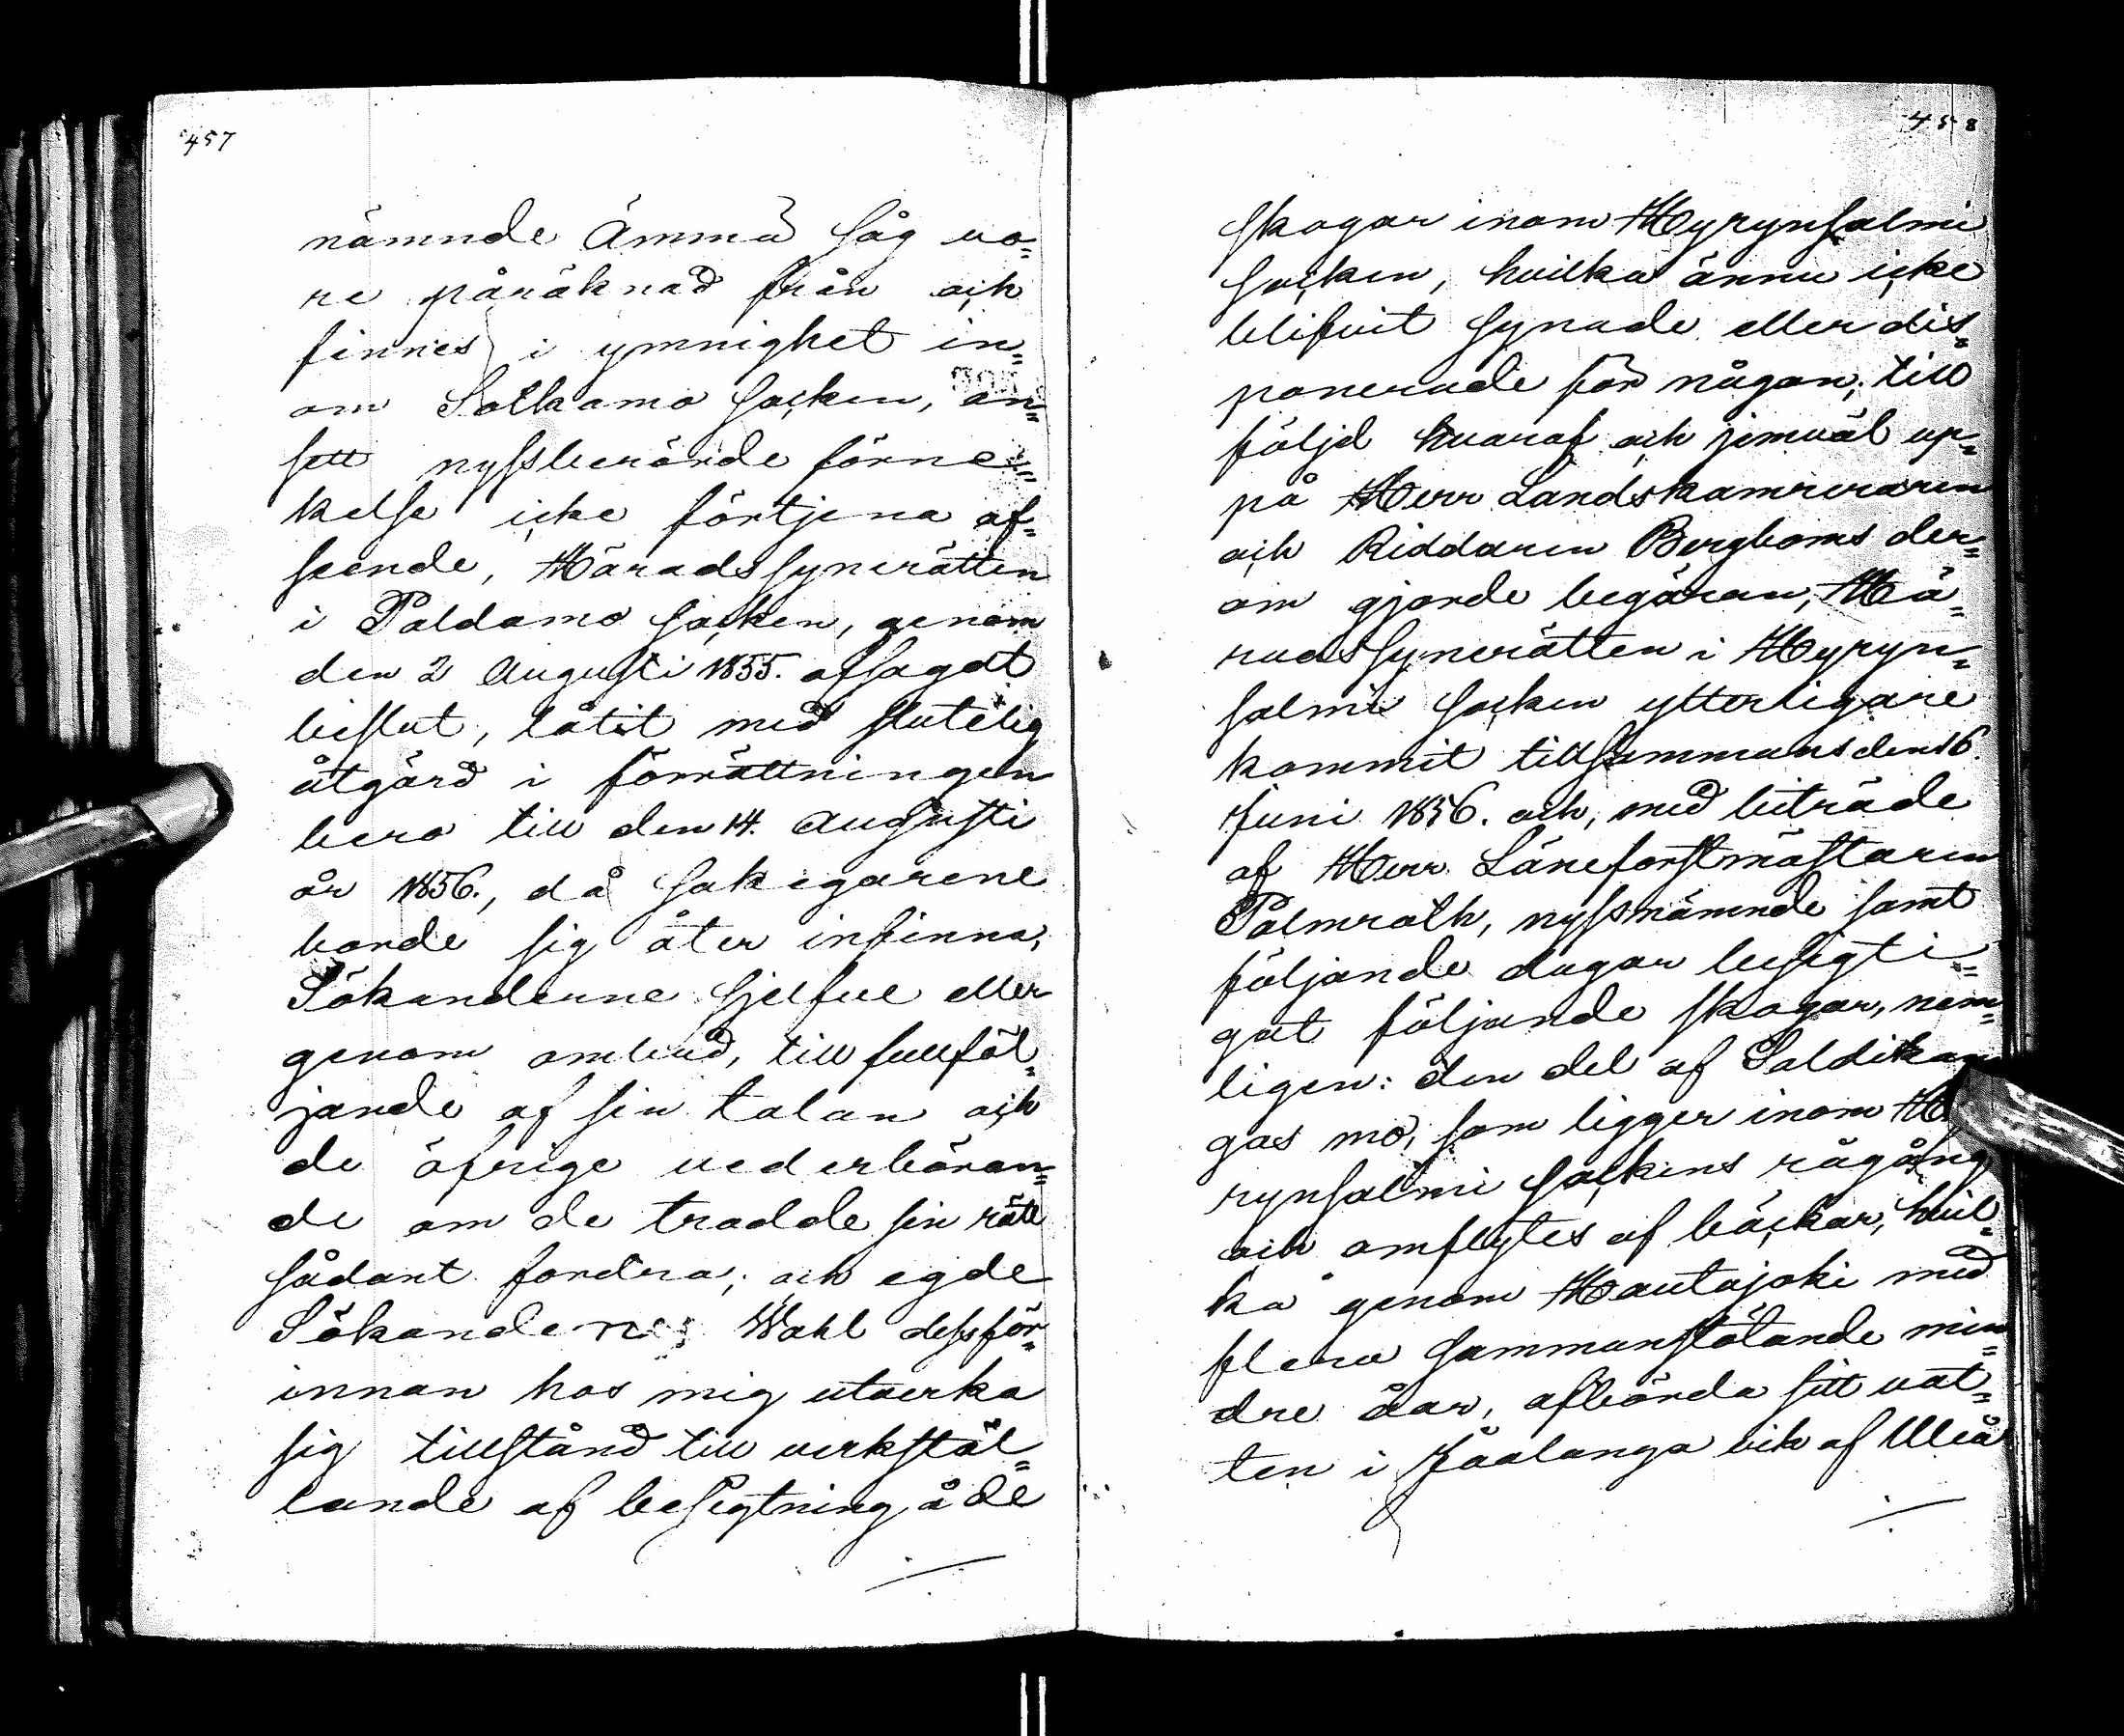 457
nämnde Ämmä såg vo=
re påräknad från och
finnes i ymnighet in=
om Sotkamo Socken, an=
sett nyssberörde förne=
kelse icke förtjena af=
seende, Häradssynerätten
i Paldamo Socken, genom
den 2 Augusti 1855. afsagdt
beslut, låtit med slutelig
åtgärd i förrättningen
bero till den 14. Augusti
år 1856., då Sakegarene
borde sig åter infinna,
Sökanderne sjelfve eller
genom ombud, till fullföl=
jande af sin talan och
de öfrige vederböran=
de om de trodde sin rätt
sådant fordra; och egde
Sökandenes Wahl dessför=
innan hos mig utverka
sig tillstånd till verkstäl=
lande af besigtning å de
458
skogar inom Hyrynsalmi
Socken, hvilka ännu icke
blifvit synade eller dis=
ponerade för någon; till
följd hvaraf och jemväl up=
på Herr Landskamreraren
och Riddaren Bergboms der=
om gjorde begäran, Hä=
radssynerätten i Hyryn=
salmi Socken ytterligare
kommit tillsammans den 16.
Juni 1856. och, med biträde
af Herr Länsforstmästaren
Palmroth, nyssnämnde samt
följande dagar besigti=
gat följande skogar, nem=
ligen: den del af Saldikan
gas mo, som ligger inom
rynsalmi Sockens rågång
och omflytes af bäckar, hvil=
ka genom Hautajoki med
flera sammanstötande min=
dre åar, afbörda sitt vat=
ten i Jaalanga vik af Uleå